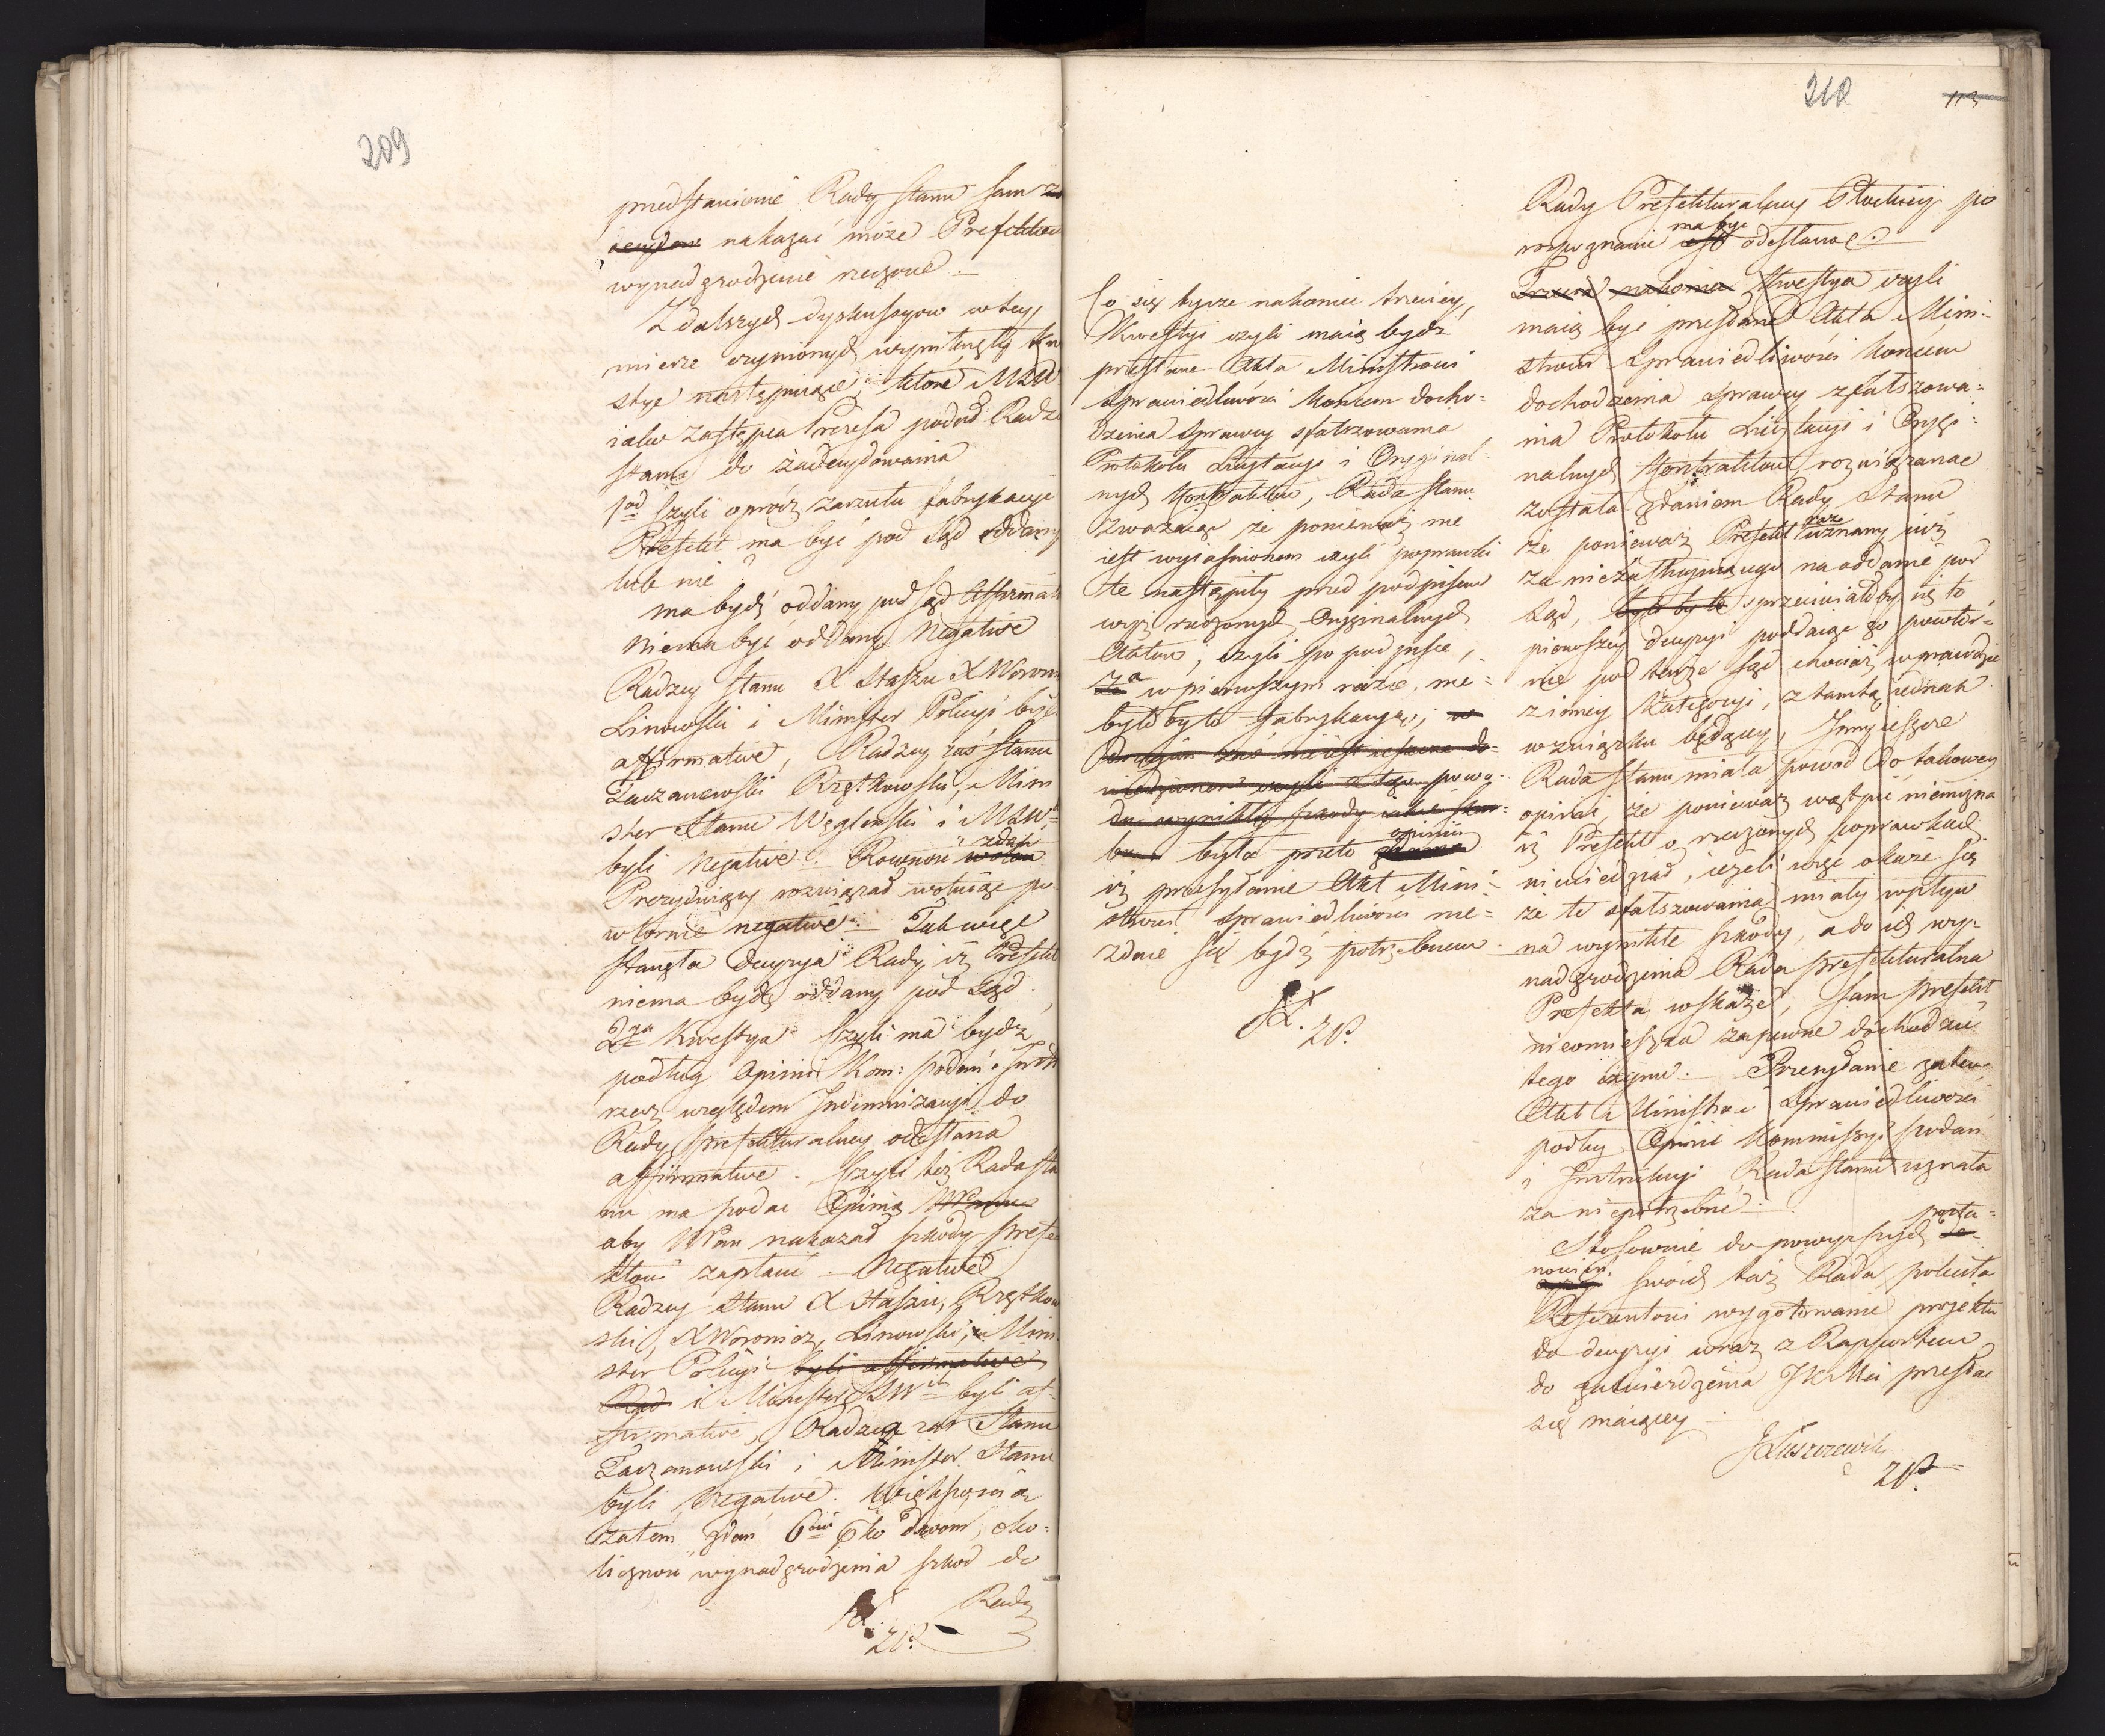 209
przedstawienie Rady Stanu sam
nakazać może Prefektowi
wynadgrodzenie rzeczone.
Z dalszych dyskussyow w tey
mierze czynionych wyniknęły kwe
stye następujące, które MSW
iako Zastępca Prezesa podał Radzie
Stanu do zadecydowania
1od Czyli oprócz zarzutu fabrykacyi
Prefekt ma być pod Sąd oddany
lub nie
ma bydź oddany pod Sąd Affirmati
niema być oddany Negative
Radzcy Stanu X Staszic X Woronicz
Linowski i Minister Policyi byli
affirmative, Radzcy zaś Stanu
Taczanowski Rzętkowski, Mini
ster Stanu Węgleński i MSW
zdań
byli Negative. Rowność wotow
Prezyduiący rozwiązał wotuiąc po
wtornie negative. Tak więc
stanęła decyzya Rady iż Prefekt
niema bydź oddany pod Sąd.
2ga Kwestya Czyli ma bydź
podług Opinii Kom: podań i Instr
rzecz względem Indemnizacyi do
Rady Prefekturalney odesłana
affirmative. Czyli też Rada Sta
nu ma podać Opinią
aby WPan nakazał szkody Prefe
ktowi zapłacić. Negative
Radzcy Stanu X Staszic, Rzętkow
ski, X Woronicz, Linowski, Mini
ster Policyi byli affirmative
i Minister SW byli af
firmative, Radzca zaś Stanu
Taczanowski i Minister Stanu
byli Negative. Większością
zatem zdań 6ciu przeciwko dwom, oko=
liczność wynadgrodzenia szkod do
Rady
210
113
Co się tycze nakoniec trzeciey
Kwestyi czyli maią bydź
przesłane Akta Ministrowi
Sprawiedliwości końcem docho=
dzenia sprawcy sfałszowania
Protokołu Licytacyi i Oryginal=
nych Kontraktow, Rada Stanu
zważaiąc że ponieważ nie
iest wyiaśnionem czyli poprawki
te nastąpiły przed podpisem
wyż rzeczonych Oryginalnych
Aktow, czyli po podpisie,
za w pierwszym razie, nie=
byłoby to fabrykacyą; w
drugim zaś nie iest ieszcze do=
wiedzionem czyli z tego powo=
du wynikły szkody iakie skar=
bu była przeto opinii
iż przesyłanie Akt Mini=
strowi Sprawiedliwości nie=
zdaie się bydź potrzebnem.
Rady Prefekturalney Płockiey po
ma być
rozpoznanie iest odesłane.
Trzecia nakoniec Kwestya czyli
maią być przesłane Akta Mini=
strowi Sprawiedliwości końcem
dochodzenia sprawcy zfałszowa=
nia Protokołu Licytacyi i Orygi=
nalnych Kontraktow rozwiązaną
została zdaniem Rady Stanu
raz
że ponieważ Prefekt uznany iuż
za niezasługuiącego na oddanie pod
Sąd, byłoby to sprzeciwiałoby się to
pierwszey decyzyi poddaiąc go powtór=
nie pod tenże Sąd chociaż wprawdzie
z inney kategoryi, z tamtą iednak
w związku będącey, Inny ieszcze
Rada Stanu miała powod do takowey
opinii, że ponieważ wątpić niemożna
iż Prefekt o rzeczonych poprawkach
niewiedział, ieżeli więc okaże się
że te sfałszowania miały wpływ
na wynikłe szkody, a do ich wy=
nadgrodzenia Rada Prefekturalna
Prefekta wskaże, sam Prefekt
nieomieszka zapewne dochodzić
tego czynu. Przesyłanie zatem
Akt Ministrowi Sprawiedliwości
podług Opinii Kommissyi podań
i Instrukcyi Rada Stanu uznała
za niepotrzebne.
posta=
Stosownie do powyższych de=
nowień
swoich taż Rada poleciła
Referentowi wygotowanie projektu
do decyzyi wraz z Rapportem
do zatwierdzenia JKMci przesłać
się maiącey
JŁuszczewski